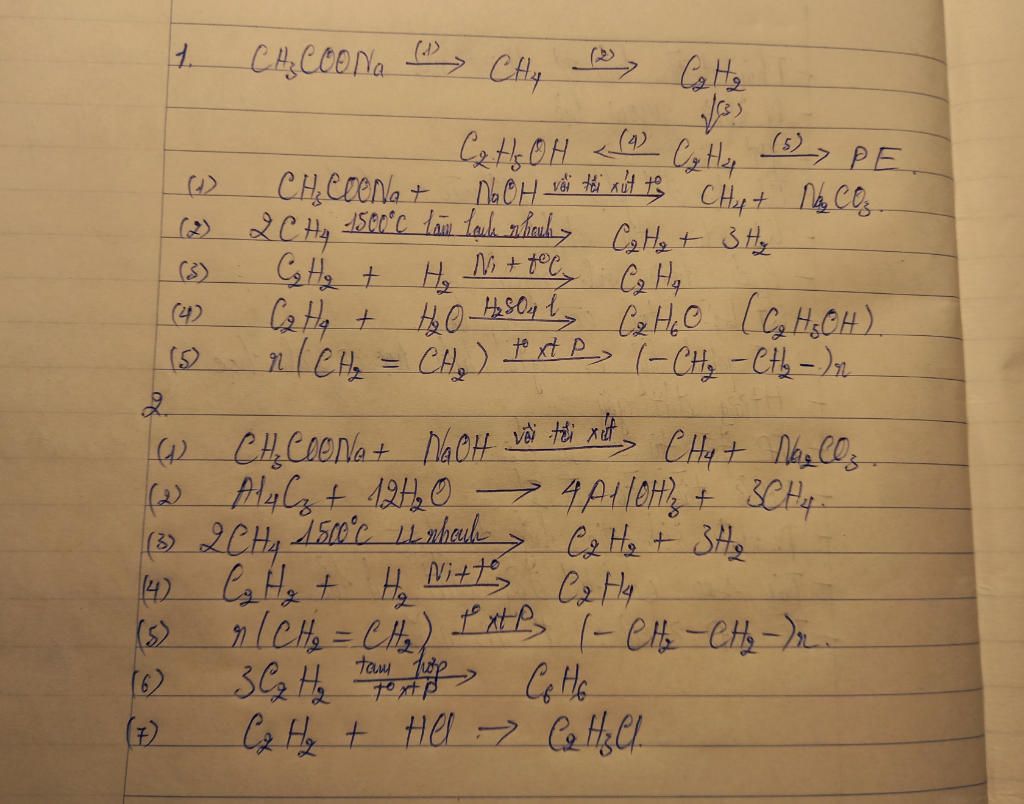 1. CH3COONa (1)→ CH4 (2)→ C2H2
↓(3)
C2H5OH ←(4) C2H4 (5)→ PE
(1) CH3COONa + NaOH vôi tôi xút t° → CH4 + Na2CO3.
(2) 2CH4 1500°C làm lạnh nhanh → C2H2 + 3H2
(3) C2H2 + H2 Ni + t°C → C2H4
(4) C2H4 + H2O H2SO4 l → C2H6O (C2H5OH).
(5) n(CH2 = CH2) t° xt P → (-CH2 - CH2-)n
2.
(1) CH3COONa + NaOH vôi tôi xút → CH4 + Na2CO3.
(2) Al4C3 + 12H2O → 4Al(OH)3 + 3CH4.
(3) 2CH4 1500°C LL nhanh → C2H2 + 3H2
(4) C2H2 + H2 Ni + t° → C2H4
(5) n(CH2 = CH2) t° xt P → (-CH2 - CH2-)n.
(6) 3C2H2 tam hợp t° xt P → C6H6
(7) C2H2 + HCl → C2H3Cl.